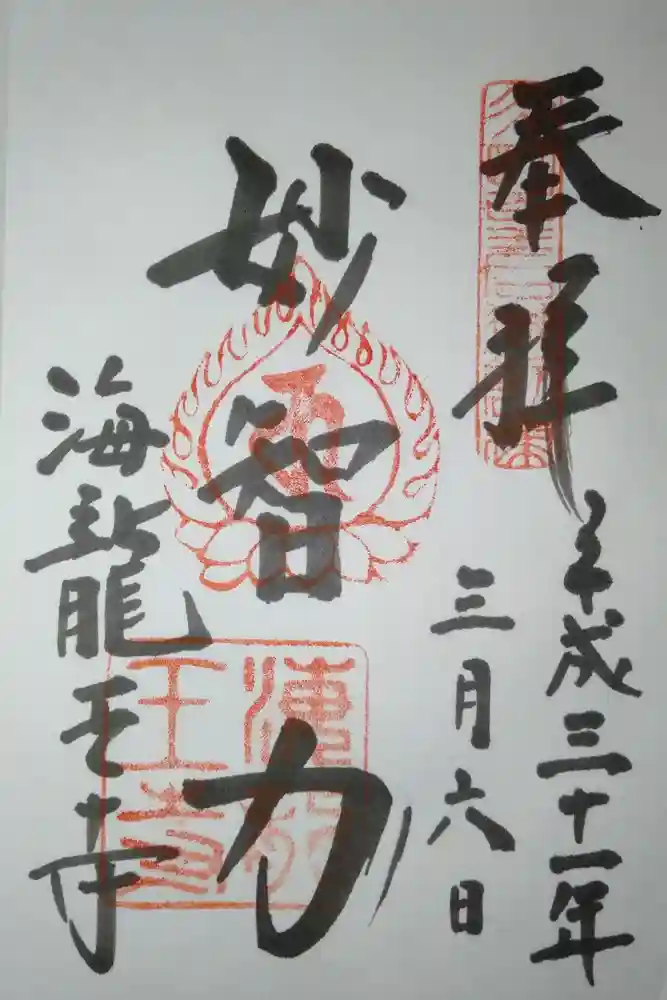 奉拝
平成三十一年
三月六日
妙智力
海龍王寺
海龍王寺